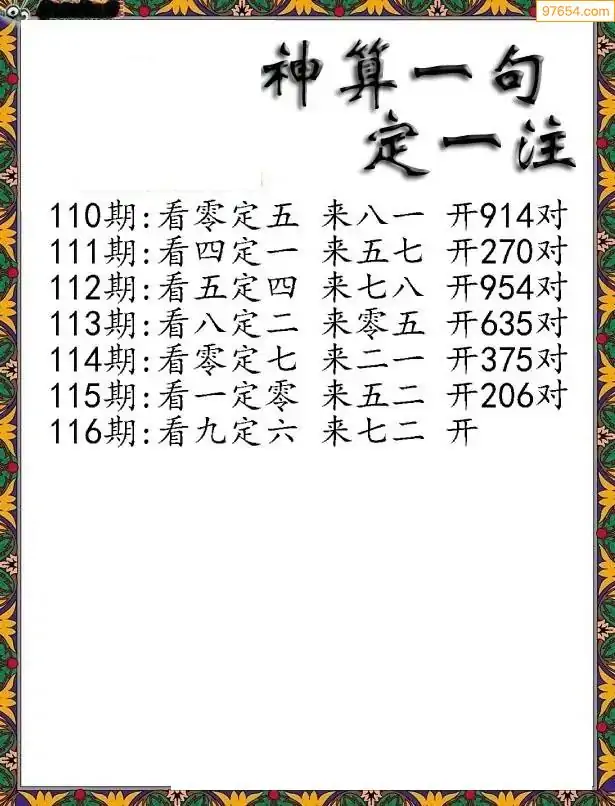 97654.com
神算一句
定一注
110期:看零定五 来八一 开914对
111期:看四定一 来五七 开270对
112期:看五定四 来七八 开954对
113期:看八定二 来零五 开635对
114期:看零定七 来二一 开375对
115期:看一定零 来五二 开206对
116期:看九定六 来七二 开